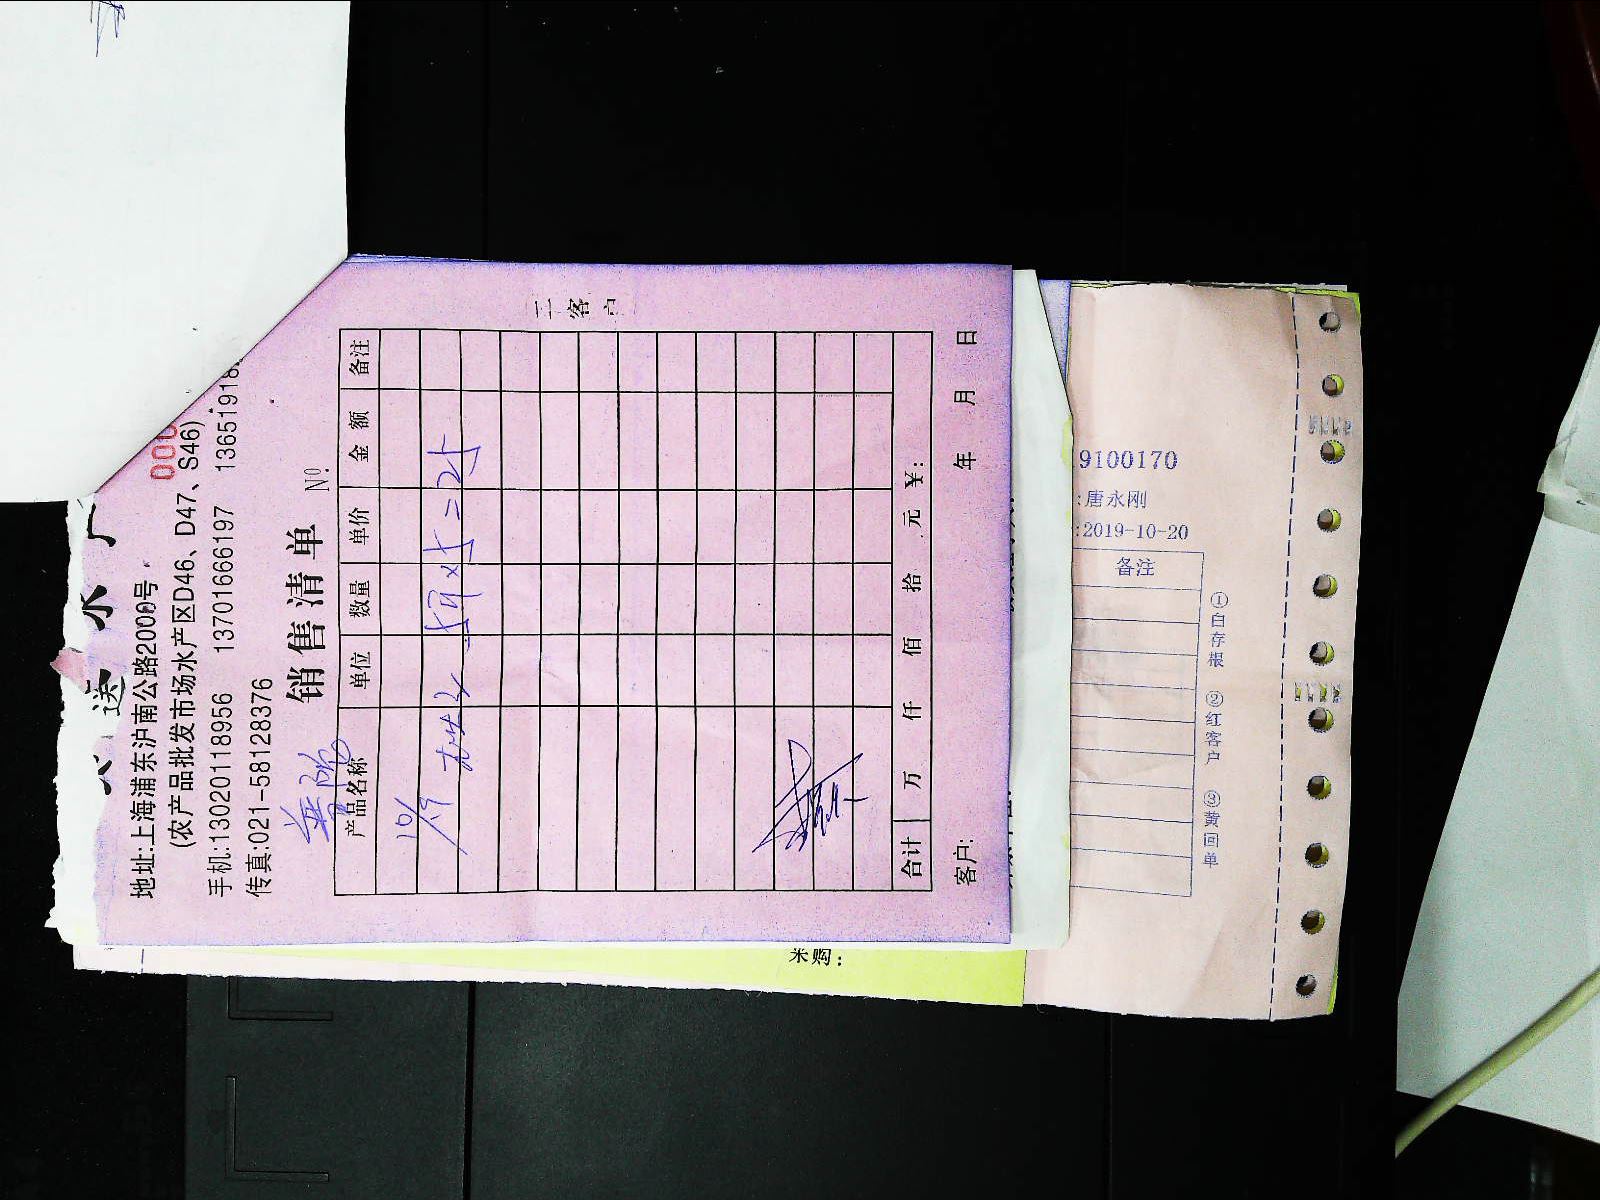 000
地址:上海浦东沪南公路2000号
(农产品批发市场水产区D46、D47、S46)
手机:13020118956 13701666197 1365191
传真:021-58128376
销售清单 №:
产品名称 单位 数量 单价 金额 备注
10/9
5斤×5=25
合计 万 仟 佰 拾 元 ¥:
客户: 年 月 日
三客户
9100170
:唐永刚
:2019-10-20
备注
①白存根 ②红客户 ③黄回单
采购: